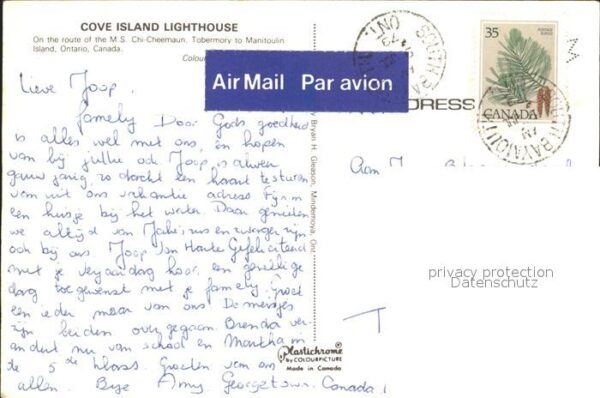 COVE ISLAND LIGHTHOUSE
On the route of the M.S. Chi-Cheemaun. Tobermory to Manitoulin
Island, Ontario, Canada.
Colou
Air Mail Par avion
35
CANADA
DRESS
SOUTH BA
ONT
by Bryan H. Gleason, Mindemoya, Ont
Lieve Joop,
famely Door Gods goedheid
is alles wel met ons, en hopen
van bij jullie ook Joop is alweer
gauw jarig, zo dacht een kaart te sturen
vanuit ons vakantie adress. Fijn in
een huisje bij het water. Daar genieten
we altijd van
ook bij ons. Joop Van Harte Gefeliciteerd
met je verjaardag hoor, een gezellige
dag toegewenst met je famely. Groet
een ieder maar van ons. De meisjes
zijn beiden over gegaan. Brenda ver
andert nu van school en Martha in
de 5de klass. Groeten van ons
allen. Bye Amy, Georgetown. Canada
T
Plastichrome
by COLOURPICTURE
Made in Canada
privacy protection
Datenschutz